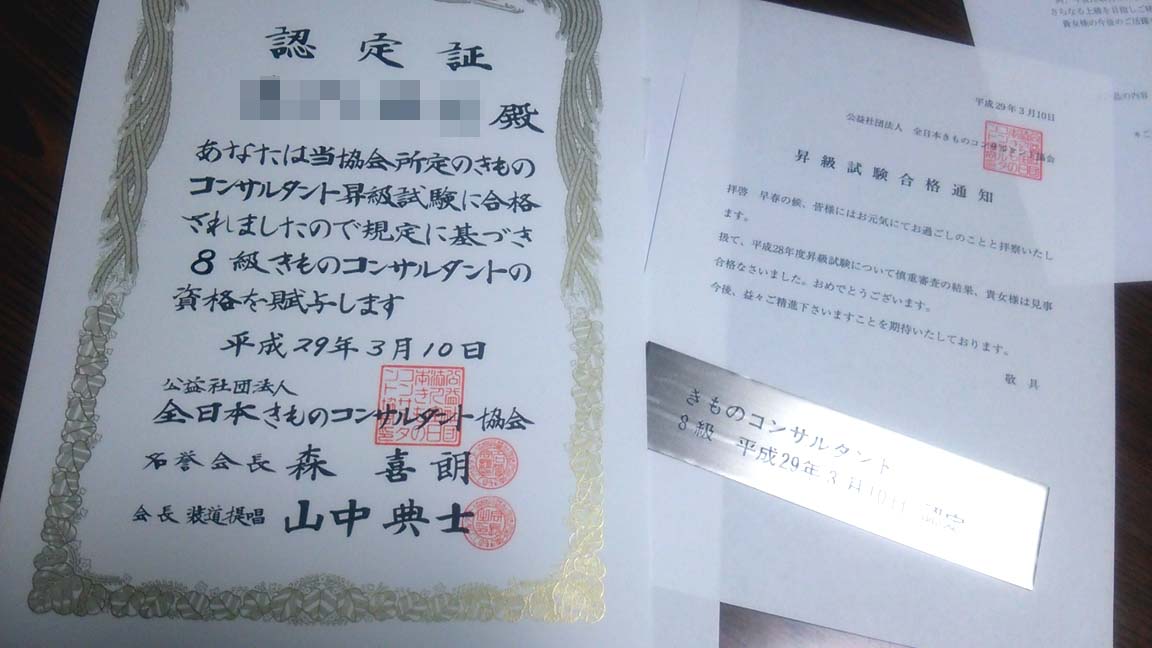 認定証
殿
あなたは当協会所定のきもの
コンサルタント昇級試験に合格
されましたので規定に基づき
8級きものコンサルタントの
資格を賦与します
平成29年3月10日
公益社団法人
全日本きものコンサルタント協会
名誉会長 森喜朗
会長 装道提唱 山中典士
平成29年3月10日
公益社団法人 全日本きものコンサルタント協会
昇級試験合格通知
拝啓 早春の候、皆様にはお元気にてお過ごしのことと拝察いたし
ます。
扨て、平成28年度昇級試験について慎重審査の結果、貴女様は見事
合格なさいました。おめでとうございます。
今後、益々ご精進下さいますことを期待いたしております。
敬具
きものコンサルタント
8級 平成29年3月10日 認定
さらなる上級を目指しご
貴女様の今後のご活躍
品の内容